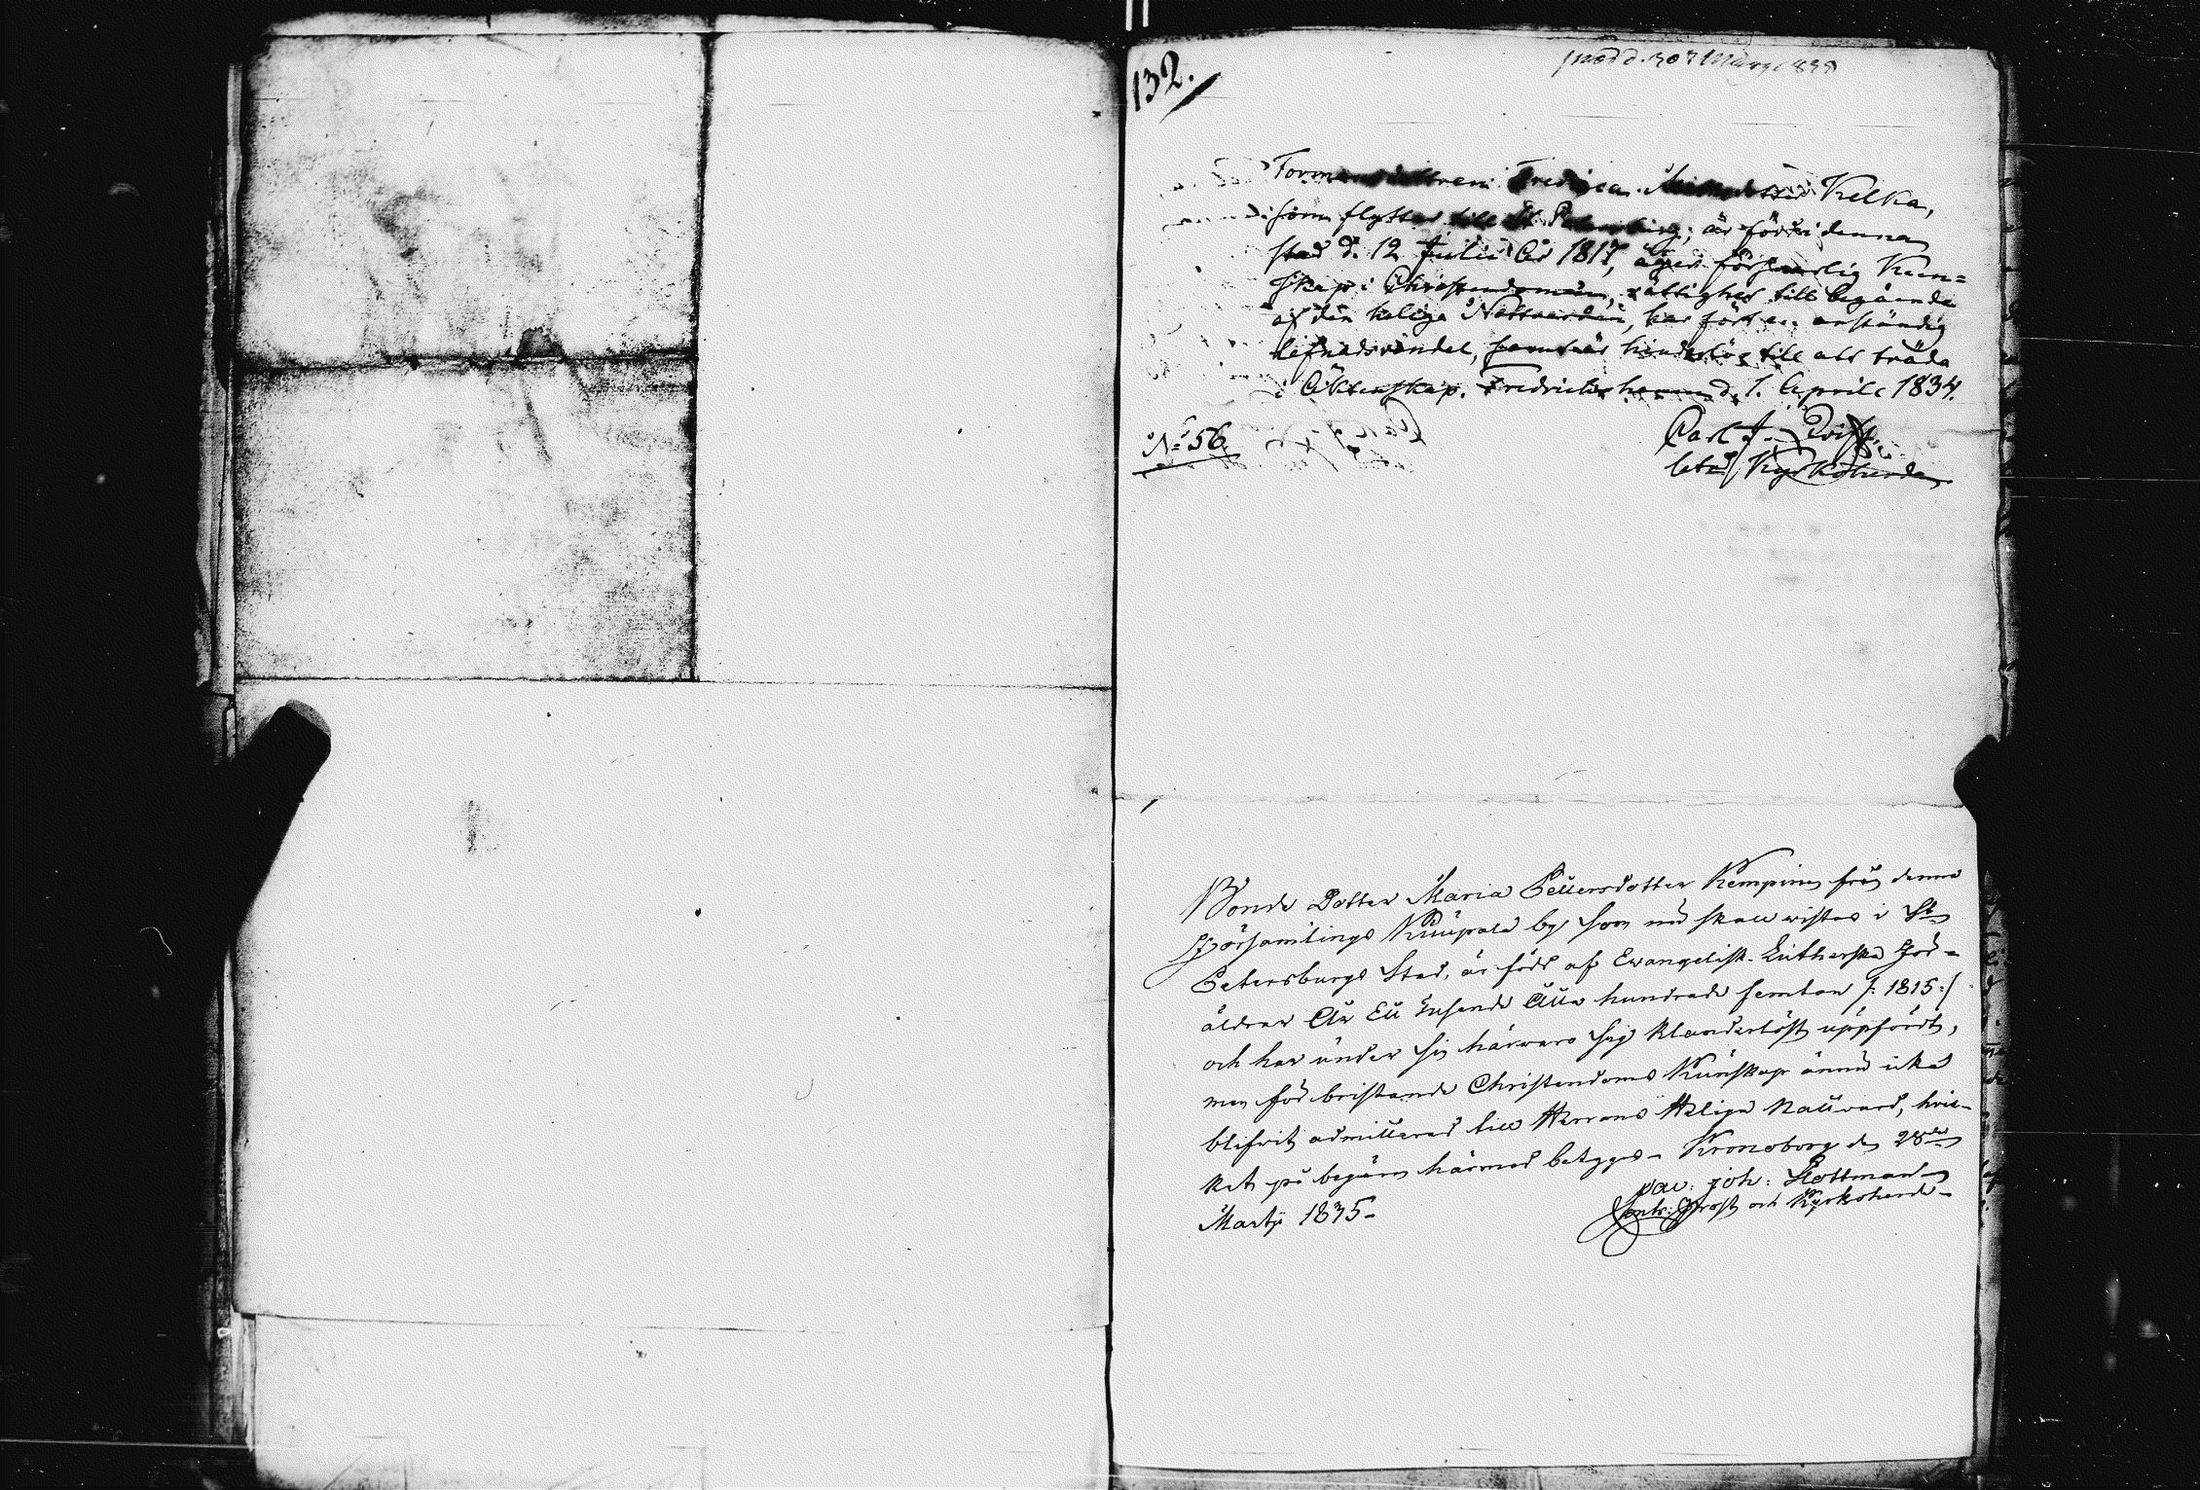 132.
Fredrica Kelka,
som flyttar till St Petersburg, är född i denna
stad d. 12 Julii år 1817, äger försvarlig Kun=
skap i Christendomen, rättighet till begående
af den heliga Nattvarden, har fört en anständig
lefnadsvandel, samt är hinderlös till att träda
i Äktenskap. Fredrickshamn d. 1. April 1834.
No 56.
Carl J.
Kyrkoherde
Bonde Dotter Maria Pettersdotter Kempinen från denna
Församlings by som nu skall vistas i St
Petersburgs Stad, är född af Evangelisk-Lutherska För-
äldrar År Ett Tusende Åtta hundrade femton /: 1815 :/
och har under sin härvaro sig klanderlöst uppfördt,
men för bristande Christendoms Kunskap ännu icke
blifvit admitterad till Herrans Heliga Nattvard, hvil-
ket på begäran härmed betygas - Kronoborg den 28de
Martii 1835 -
joh: Hottman
Prost och Kyrkoherde -